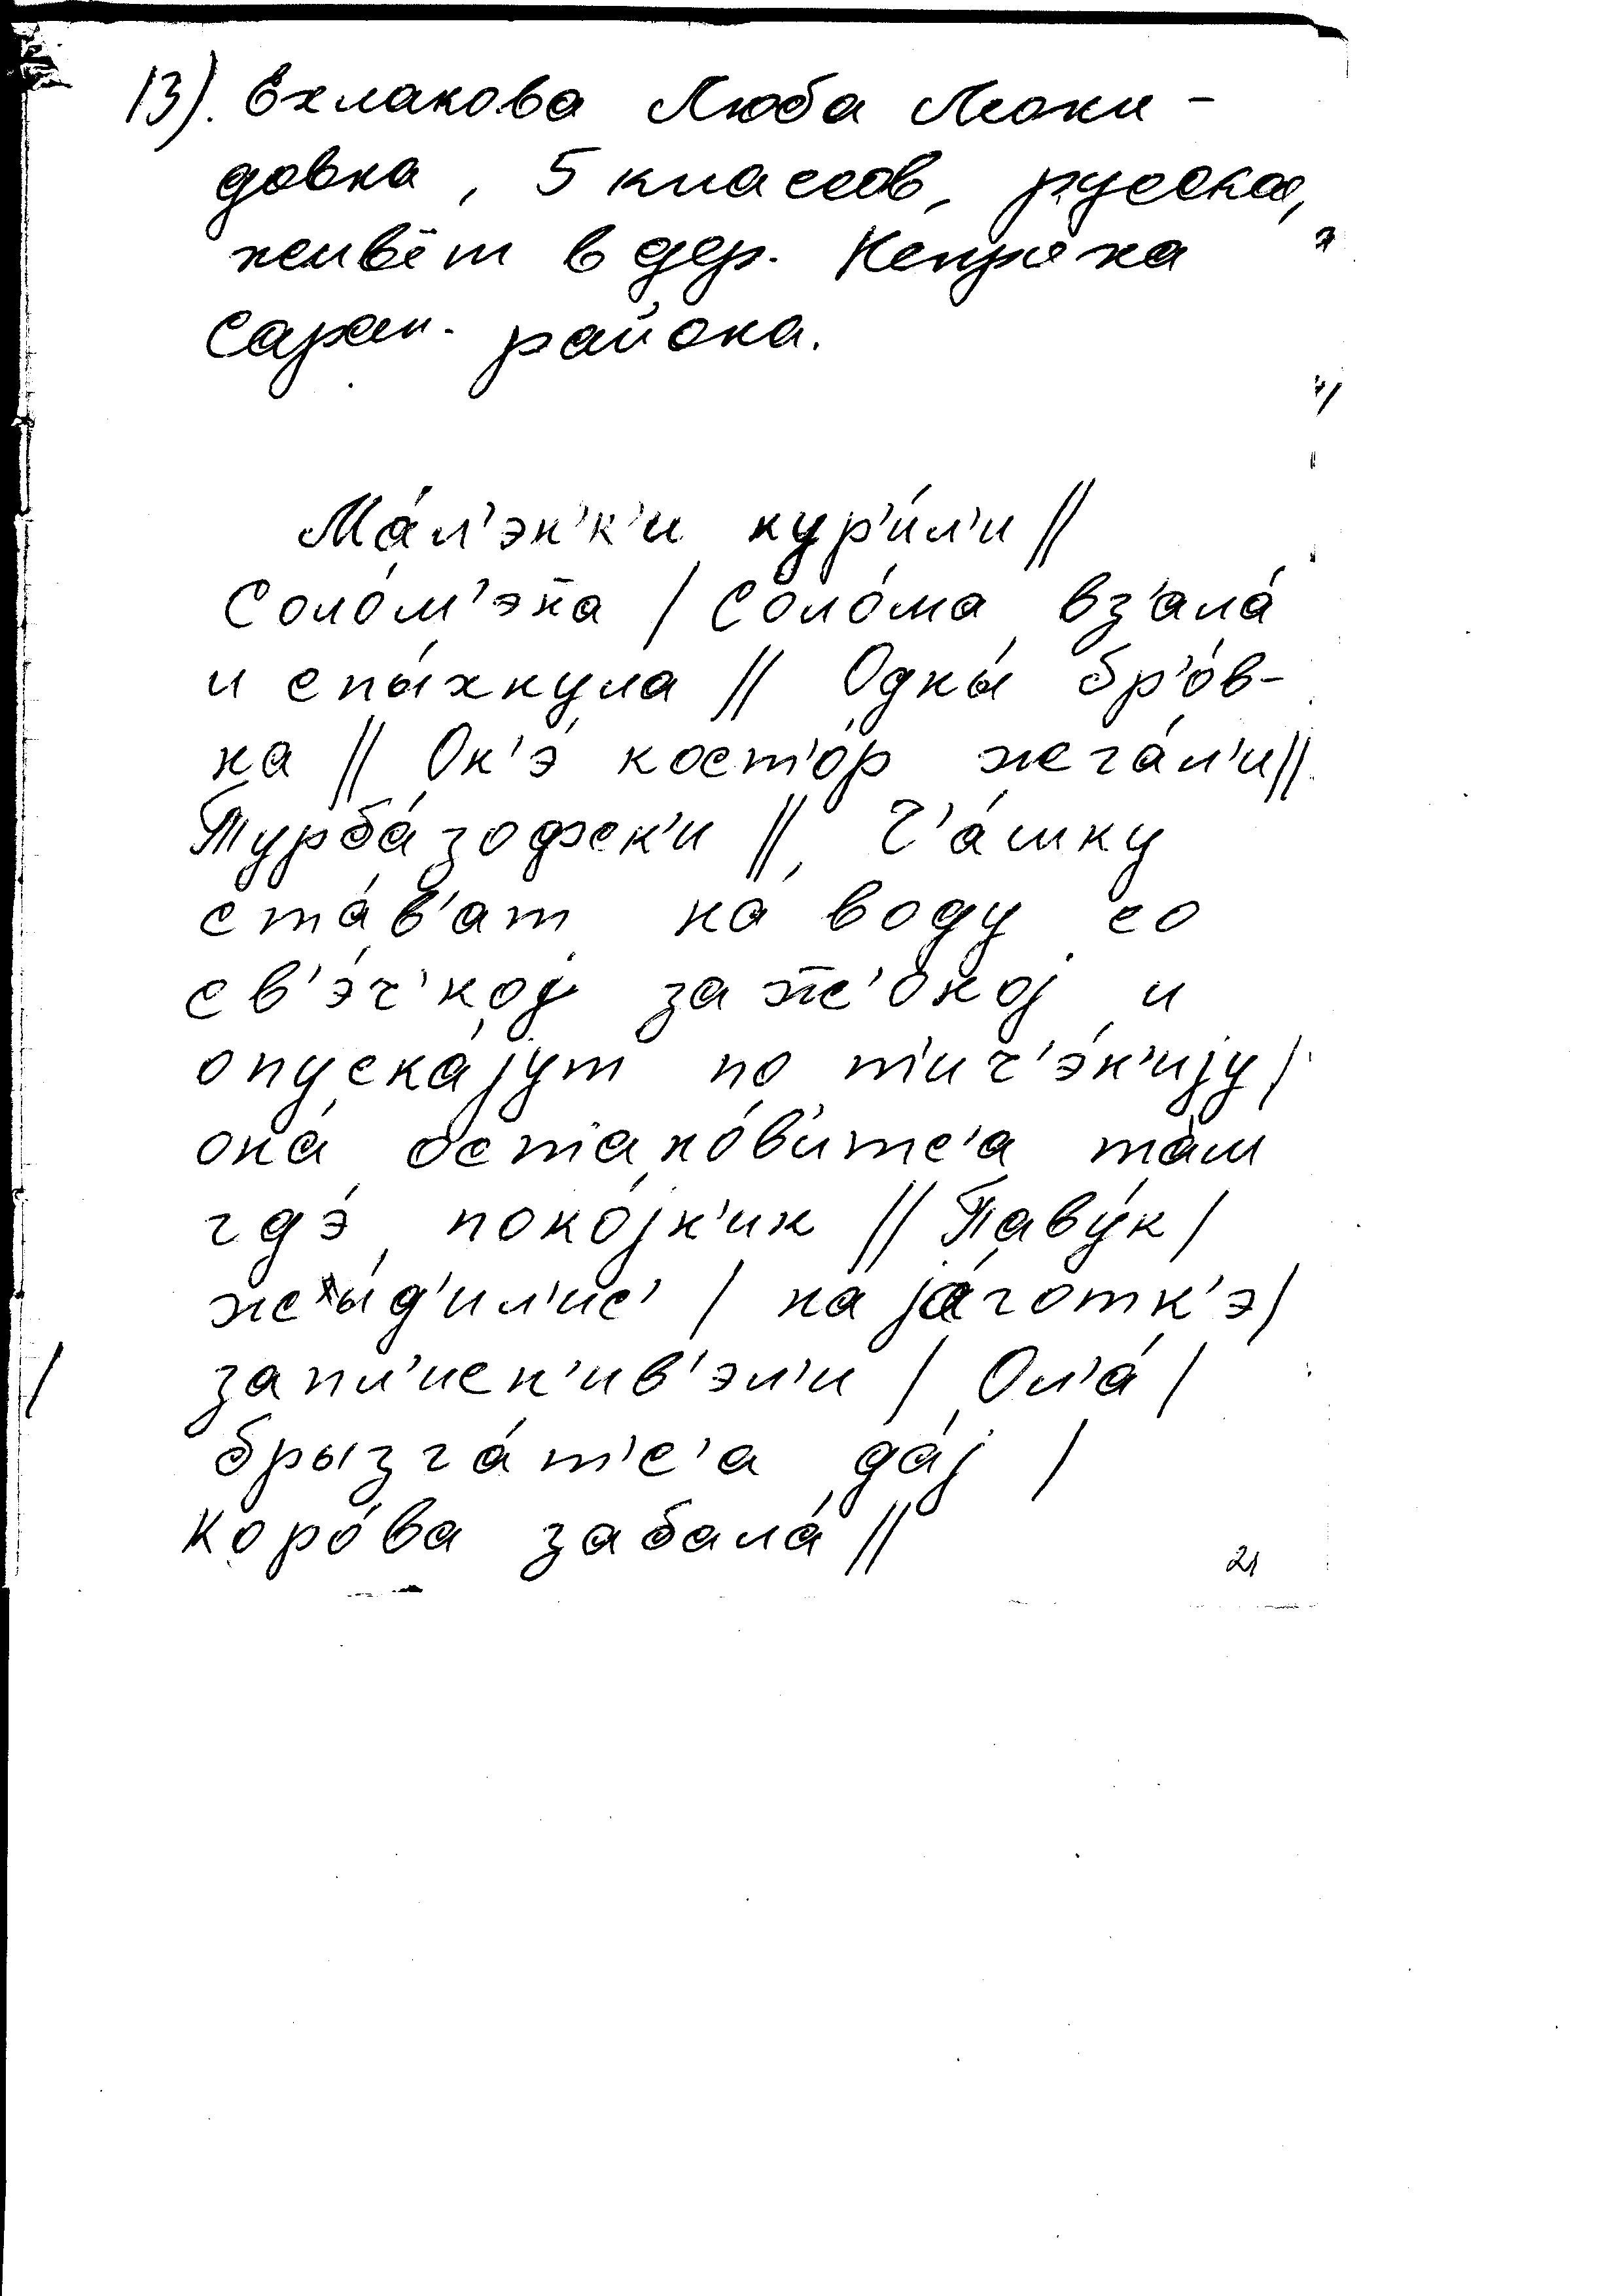 13). Ехлакова Люба Леони-
довна, 5 классов, русская,
живёт в дер. Непряха
Саран. района.
Ма́л'эн'к'и кур'и́л'и //
Соло́м'эна / Соло́ма вз'ала́
и спы́хнула // Одны́ бр'о́в-
на // Он'э́ кост'о́р жга́л'и //
Турба́зофск'и // Ч'а́шку
ста́в'ат на́ воду со
св'э́ч'кој заж'о́ной и
опуска́јут по т'ич'э́н'ију /
она́ остано́в'итс'а та́м
гдэ́ поко́јн'ик // Паву́к /
жы́д'ил'ис' / на ја́готк'э /
запл'исн'ив'эл'и / Ол'а́ /
брызга́т'с'а да́ј /
Коро́ва забала́ //
21